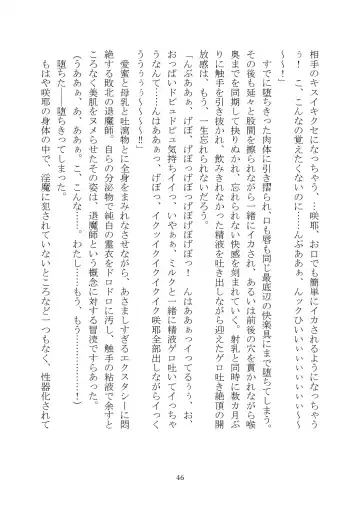 相手のキスイキクセになっちゃう、…咲耶、お口でも簡単にイカされるようになっちゃう
ぅ! こ、こんなの覚えたくないのに──んぶああぁ、んックひいいぃいぃいぃいぃ～
～～!」
すでに堕ちきった肉体に引き摺られ、口も唇も同じ最底辺の快楽具にまで堕ちてしまう。
その後も延々と股間を擦られながら一緒にイカされ、あるいは前後の穴を貫かれながら喉
奥までを同期して抉りぬかれ、忘れられない快感を刻まれていく。射乳と同時に数カ月ぶ
りに触手を引き抜かれ、飲みきれなかった精液を吐き出しながら迎えたゲロ吐き絶頂の開
放感は、もう、一生忘れられないだろう。
「んぶああぁ、げぼ、げぼっげぼっげぼげぼげぼっ! んはああぁっイってるぅぅ、お、
おっぱいドビュドビュ気持ちイイっ、いやぁぁ、ミルクと一緒に精液ゲロ吐いてイっちゃ
うなんて…んはあぁっ、げぼっ、イクッイクイクイクイク咲耶全部出しながらイっく
ううぅぅぅ～～～～!!」
愛蜜と母乳と吐瀉物とに全身をまみれなさせながら、あさましすぎるエクスタシーに悶
絶する敗北の退魔師。自らの分泌物で純白の霊衣をドロドロに汚し、触手の粘液で余すと
ころなく美肌をヌメらせたその姿は、退魔師という概念に対する冒涜ですらあった。
(うああぁ、あ、ああぁ。こ、こんな……。わたし……もう、もう────)
堕ちた──堕ちきってしまった。
もはや咲耶の身体の中で、淫魔に犯されていないところなど一つもなく、性器化されて
46